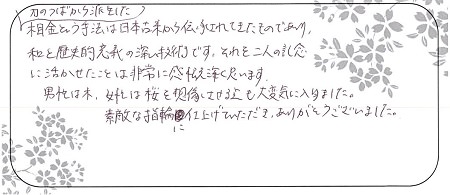 刀のつばから派生した
杢目金という手法は日本古来から伝承されてきたものであり、
和と歴史的意義の深い技術です。それを二人の記念
に活かせたことは非常に感慨深く思います。
男性は木、女性は桜を想像させる上も大変気に入りました。
素敵な指輪に仕上げていただき、ありがとうございました。